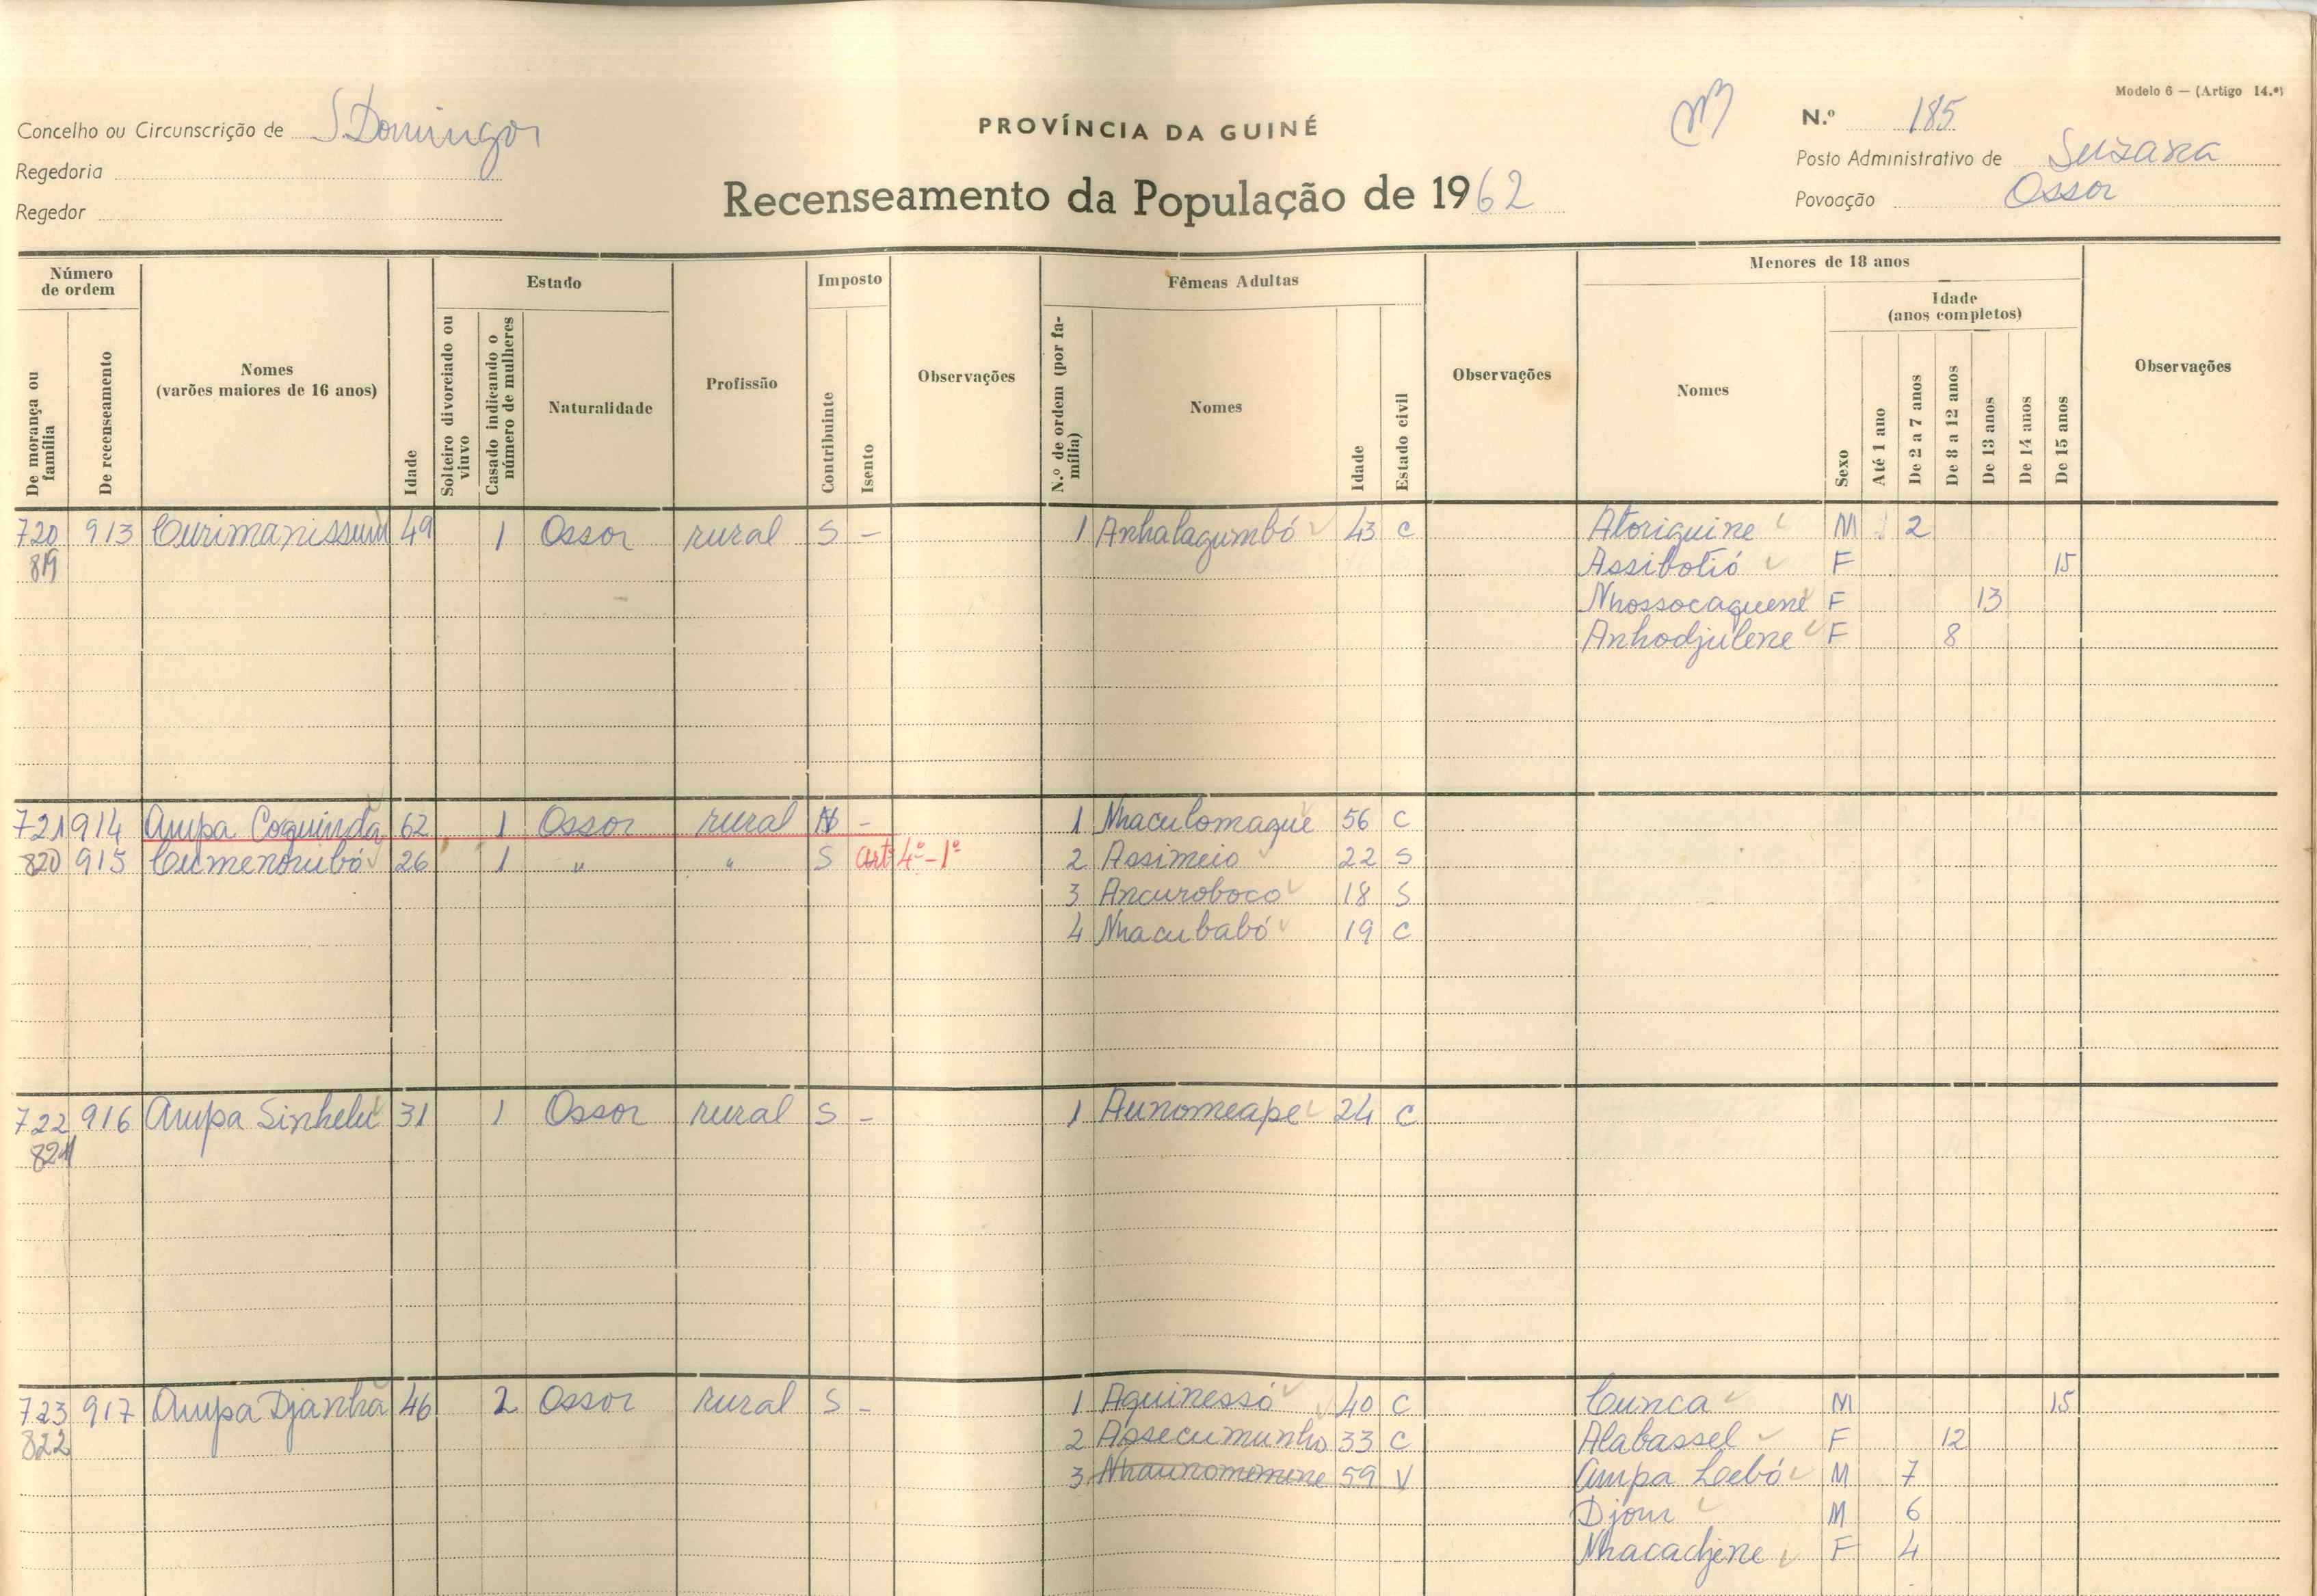 Modelo 6 — (Artigo 14.º)
Concelho ou Circunscrição de S. Domingos
PROVÍNCIA DA GUINÉ
N.º 185
Regedoria
Posto Administrativo de Suzana
Regedor
Recenseamento da População de 1962
Povoação Ossor
Número de ordem
Estado
Imposto
Fêmeas Adultas
Menores de 18 anos
Idade (anos completos)
De morança ou família
De recenseamento
Nomes (varões maiores de 16 anos)
Idade
Solteiro divorciado ou viuvo
Casado indicando o número de mulheres
Naturalidade
Profissão
Contribuinte
Isento
Observações
N.º de ordem (por família)
Nomes
Idade
Estado civil
Observações
Nomes
Sexo
Até 1 ano
De 2 a 7 anos
De 8 a 12 anos
De 13 anos
De 14 anos
De 15 anos
Observações
720 913 Curimanissum 49 1 Ossor rural S - 1 Anhalagumbó 43 C Atoriguine M 2
819 Assibotió F 15
Nhossocaguene F 13
Anhodjulene F 8
721 914 Ampa Coguinda 62 1 Ossor rural - 1 Nhaculomague 56 C
820 915 Cumenorubó 26 1 " " S artº 4º-1º 2 Assimeio 22 S
3 Ancuroboco 18 S
4 Nhacubabó 19 C
722 916 Ampa Sinhelu 31 1 Ossor rural S - 1 Aunomeape 24 C
821
723 917 Ampa Djanha 46 2 Ossor rural S - 1 Aguinessó 40 C Cunca M 15
822 2 Assecumunho 33 C Alabassel F 12
3 Nhaunomemene 59 V Ampa Lebó M 7
Djom M 6
Nhacadjene F 4